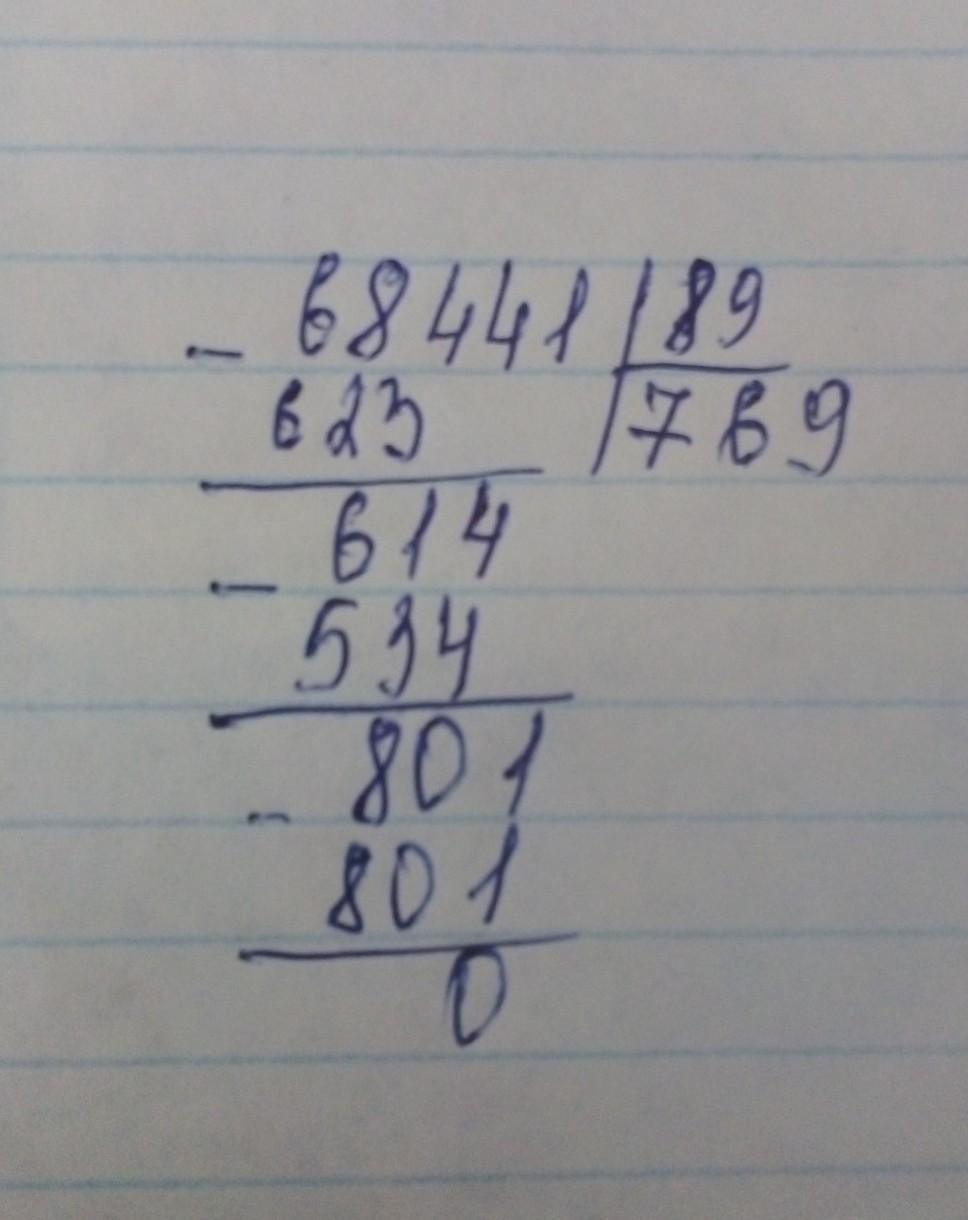 - 68441 | 89
623 | 769
614
- 534
801
- 801
0